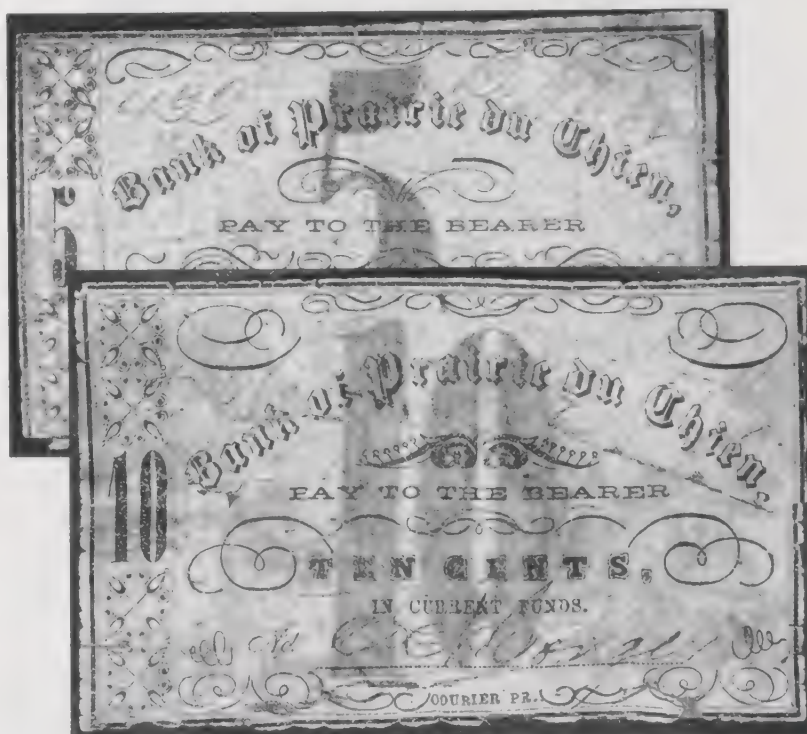 Bank of Prairie du Chien,
PAY TO THE BEARER
5
Bank of Prairie du Chien,
PAY TO THE BEARER
10
TEN CENTS,
IN CURRENT FUNDS.
COURIER PR.